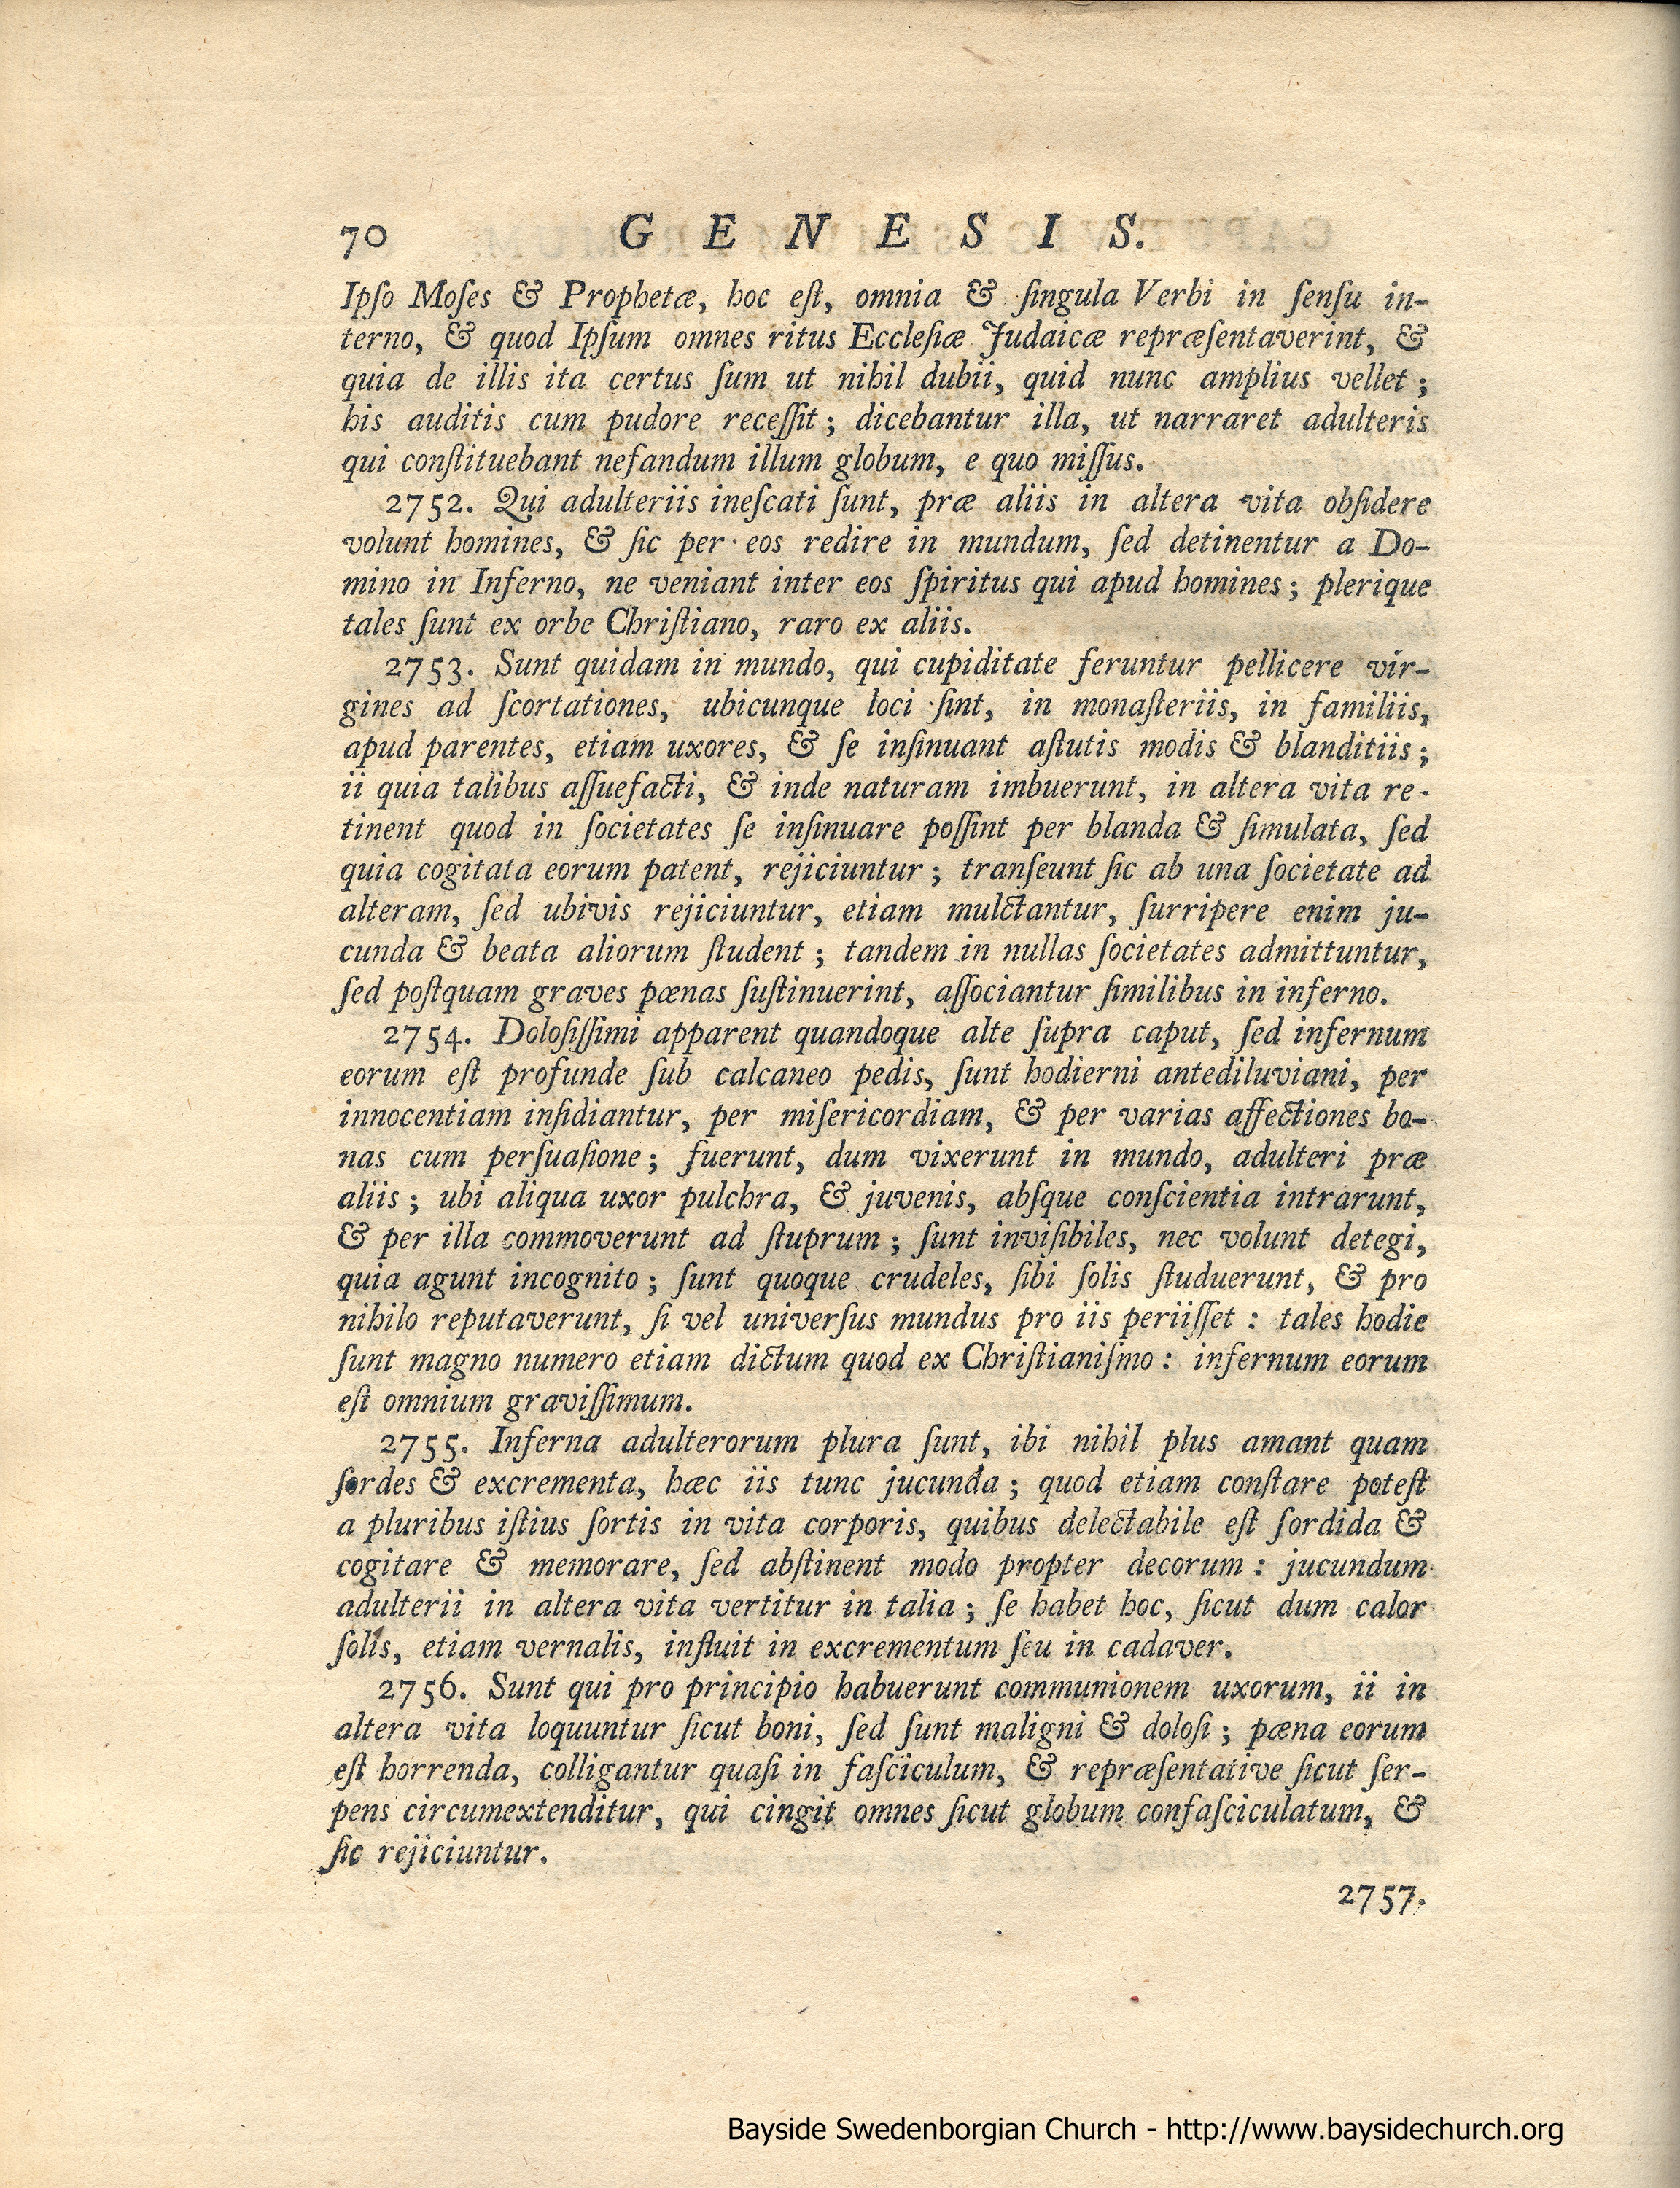 70 GENESIS.
Ipſo Moſes & Prophetæ, hoc eſt, omnia & ſingula Verbi in ſenſu in-
terno, & quod Ipſum omnes ritus Eccleſiæ Judaicæ repræſentaverint, &
quia de illis ita certus ſum ut nihil dubii, quid nunc amplius vellet;
his auditis cum pudore receſſit; dicebantur illa, ut narraret adulteris
qui conſtituebant nefandum illum globum, e quo miſſus.
2752. Qui adulteriis ineſcati ſunt, præ aliis in altera vita obſidere
volunt homines, & ſic per eos redire in mundum, ſed detinentur a Do-
mino in Inferno, ne veniant inter eos ſpiritus qui apud homines; plerique
tales ſunt ex orbe Chriſtiano, raro ex aliis.
2753. Sunt quidam in mundo, qui cupiditate feruntur pellicere vir-
gines ad ſcortationes, ubicunque loci ſint, in monaſteriis, in familiis,
apud parentes, etiam uxores, & ſe inſinuant aſtutis modis & blanditiis;
ii quia talibus aſſuefacti, & inde naturam imbuerunt, in altera vita re-
tinent quod in ſocietates ſe inſinuare poſſint per blanda & ſimulata, ſed
quia cogitata eorum patent, rejiciuntur; tranſeunt ſic ab una ſocietate ad
alteram, ſed ubivis rejiciuntur, etiam mulctantur, ſurripere enim ju-
cunda & beata aliorum ſtudent; tandem in nullas ſocietates admittuntur,
ſed poſtquam graves pœnas ſuſtinuerint, aſſociantur ſimilibus in inferno.
2754. Doloſiſſimi apparent quandoque alte ſupra caput, ſed infernum
eorum eſt profunde ſub calcaneo pedis, ſunt hodierni antediluviani, per
innocentiam inſidiantur, per miſericordiam, & per varias affectiones bo-
nas cum perſuaſione; fuerunt, dum vixerunt in mundo, adulteri præ
aliis; ubi aliqua uxor pulchra, & juvenis, abſque conſcientia intrarunt,
& per illa commoverunt ad ſtuprum; ſunt inviſibiles, nec volunt detegi,
quia agunt incognito; ſunt quoque crudeles, ſibi ſolis ſtuduerunt, & pro
nihilo reputaverunt, ſi vel univerſus mundus pro iis periiſſet: tales hodie
ſunt magno numero etiam dictum quod ex Chriſtianiſmo: infernum eorum
eſt omnium graviſſimum.
2755. Inferna adulterorum plura ſunt, ibi nihil plus amant quam
ſordes & excrementa, hæc iis tunc jucunda; quod etiam conſtare poteſt
a pluribus iſtius ſortis in vita corporis, quibus delectabile eſt ſordida &
cogitare & memorare, ſed abſtinent modo propter decorum: jucundum
adulterii in altera vita vertitur in talia; ſe habet hoc, ſicut dum calor
ſolis, etiam vernalis, influit in excrementum ſeu in cadaver.
2756. Sunt qui pro principio habuerunt communionem uxorum, ii in
altera vita loquuntur ſicut boni, ſed ſunt maligni & doloſi; pœna eorum
eſt horrenda, colligantur quaſi in faſciculum, & repræſentative ſicut ſer-
pens circumextenditur, qui cingit omnes ſicut globum confaſciculatum, &
ſic rejiciuntur.
2757.
Bayside Swedenborgian Church - http://www.baysidechurch.org